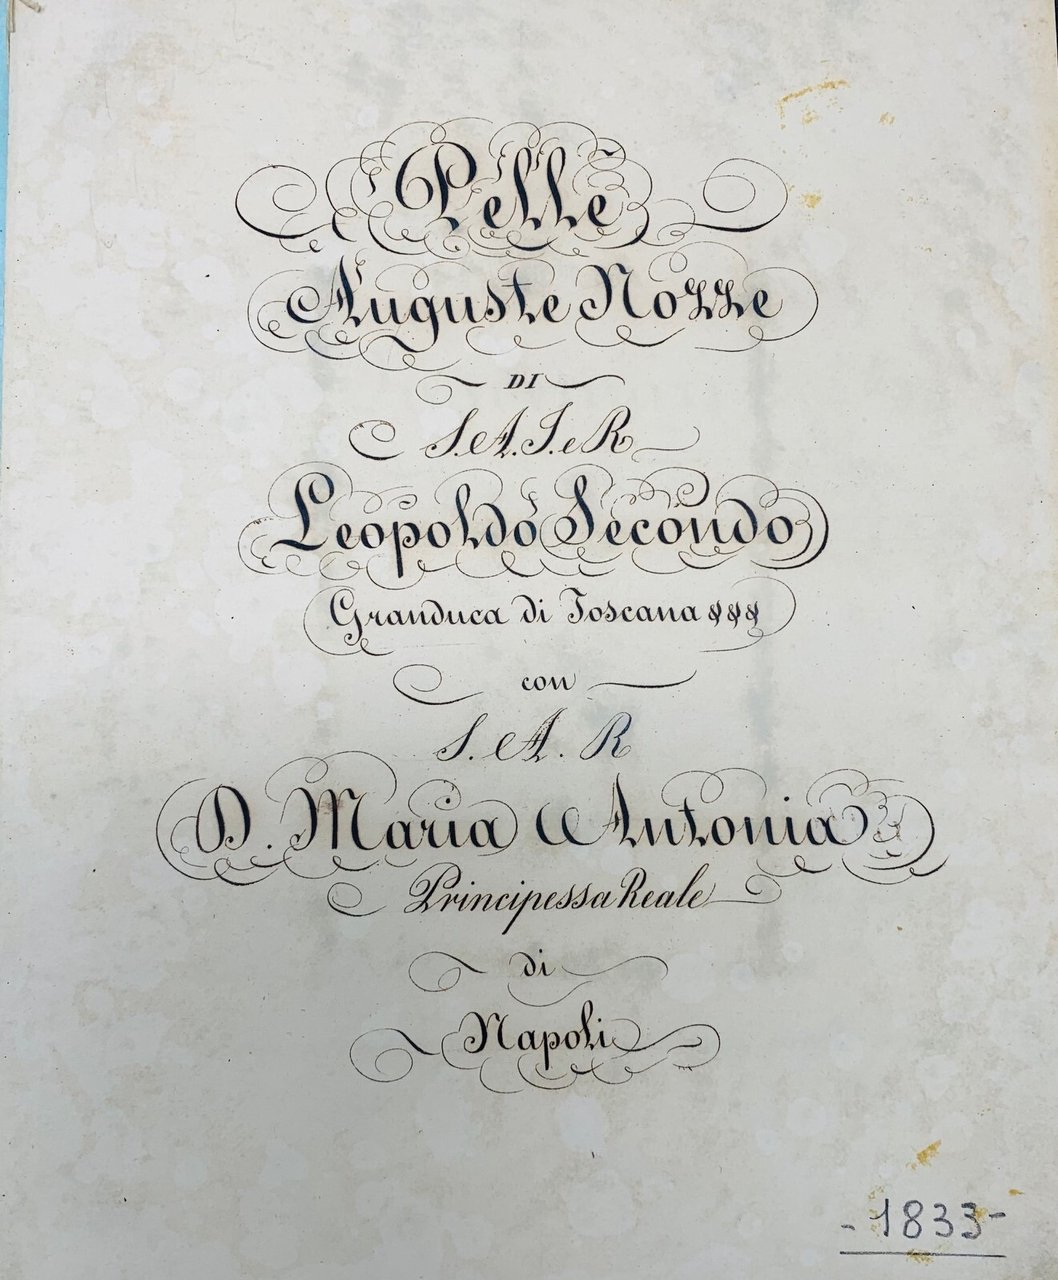 Pelle
Auguste Nozze
DI
S. A. I. e R
Leopoldo Secondo
Granduca di Toscana &&&
con
S. A. R
D. Maria Antonia
Principessa Reale
di
Napoli
- 1833 -